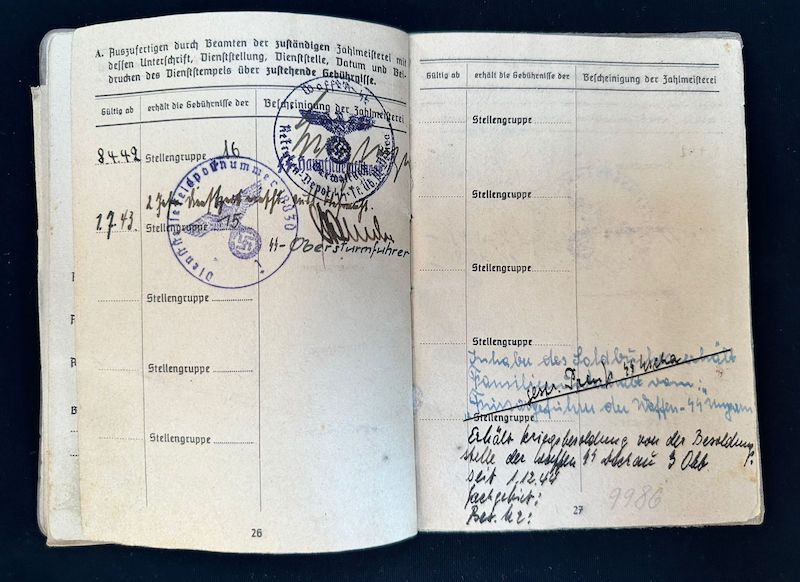 A. Auszufertigen durch Beamten der zuständigen Zahlmeisterei mit
dessen Unterschrift, Dienststellung, Dienststelle, Datum und Bei-
drucken des Dienststempels über zustehende Gebührnisse.
Gültig ab erhält die Gebührnisse der Bescheinigung der Zahlmeisterei
8.4.42 Stellengruppe 16
Waffen-SS
1.7.43. Stellengruppe 15
SS-Obersturmführer
Dienststelle Feldpostnummer
Stellengruppe
Stellengruppe
Stellengruppe
26
Gültig ab erhält die Gebührnisse der Bescheinigung der Zahlmeisterei
Stellengruppe
Stellengruppe
Stellengruppe
Stellengruppe
Inhaber des Soldbuches erhält
Familien
der Waffen-SS Ungarn
Stellengruppe
Erhält Kriegsbesoldung von der Besoldung
stelle der Waffen SS Dachau 3 Okt
seit 1.12.44
Fachgebiet:
9986
27